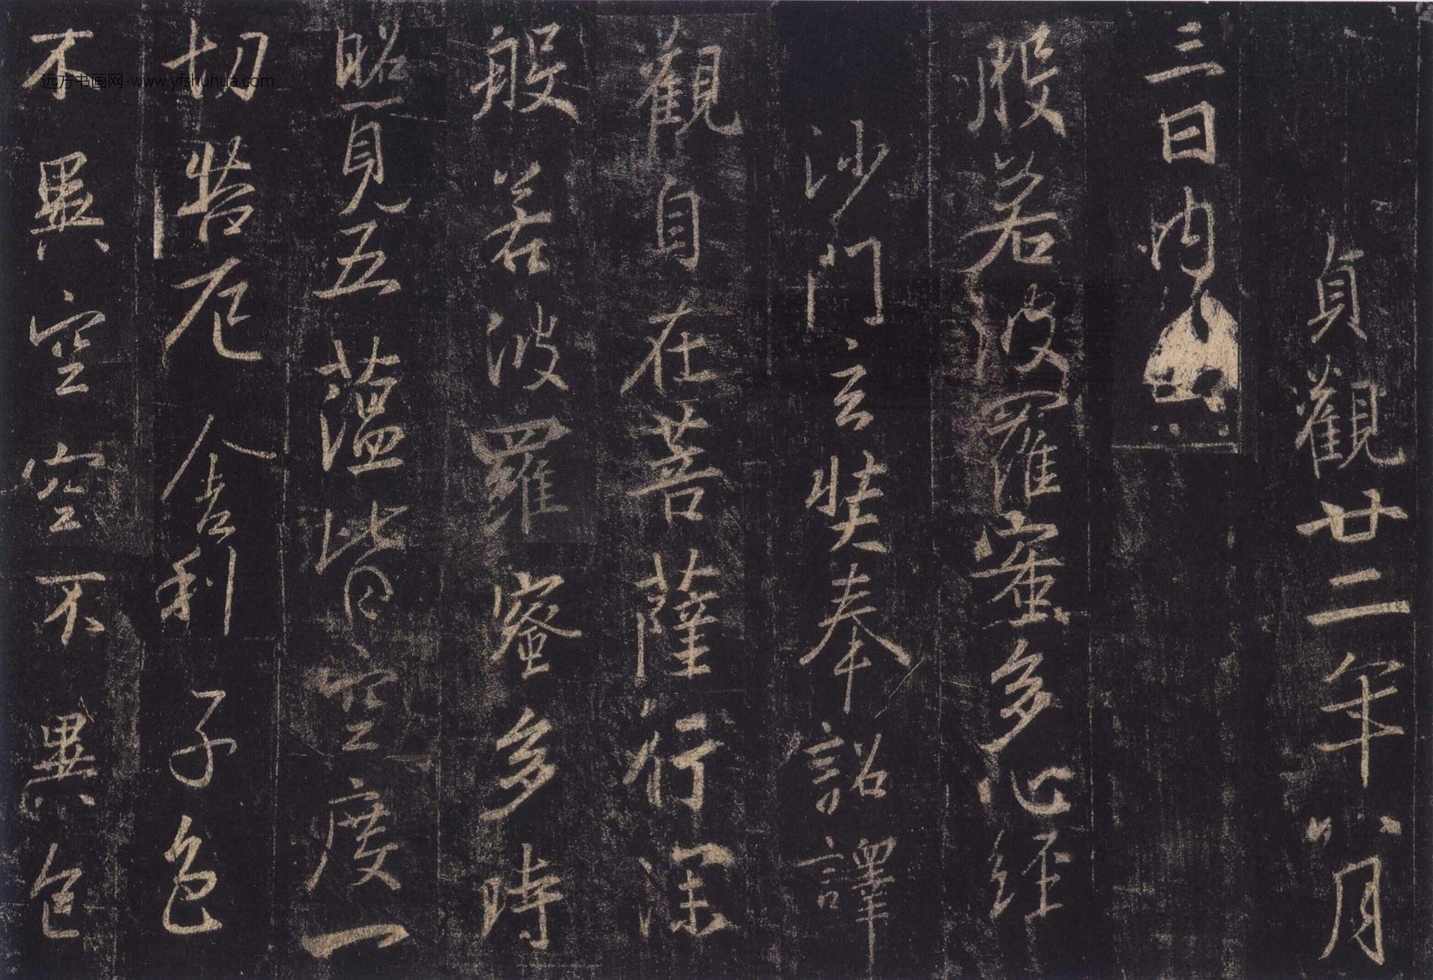 貞觀廿二年八月
三日內出
般若波羅蜜多心經
沙門玄奘奉詔譯
觀自在菩薩行深
般若波羅蜜多時
照見五蘊皆空度一
切苦厄舍利子色
不異空空不異色
远方书画网-www.yfshuhua.com